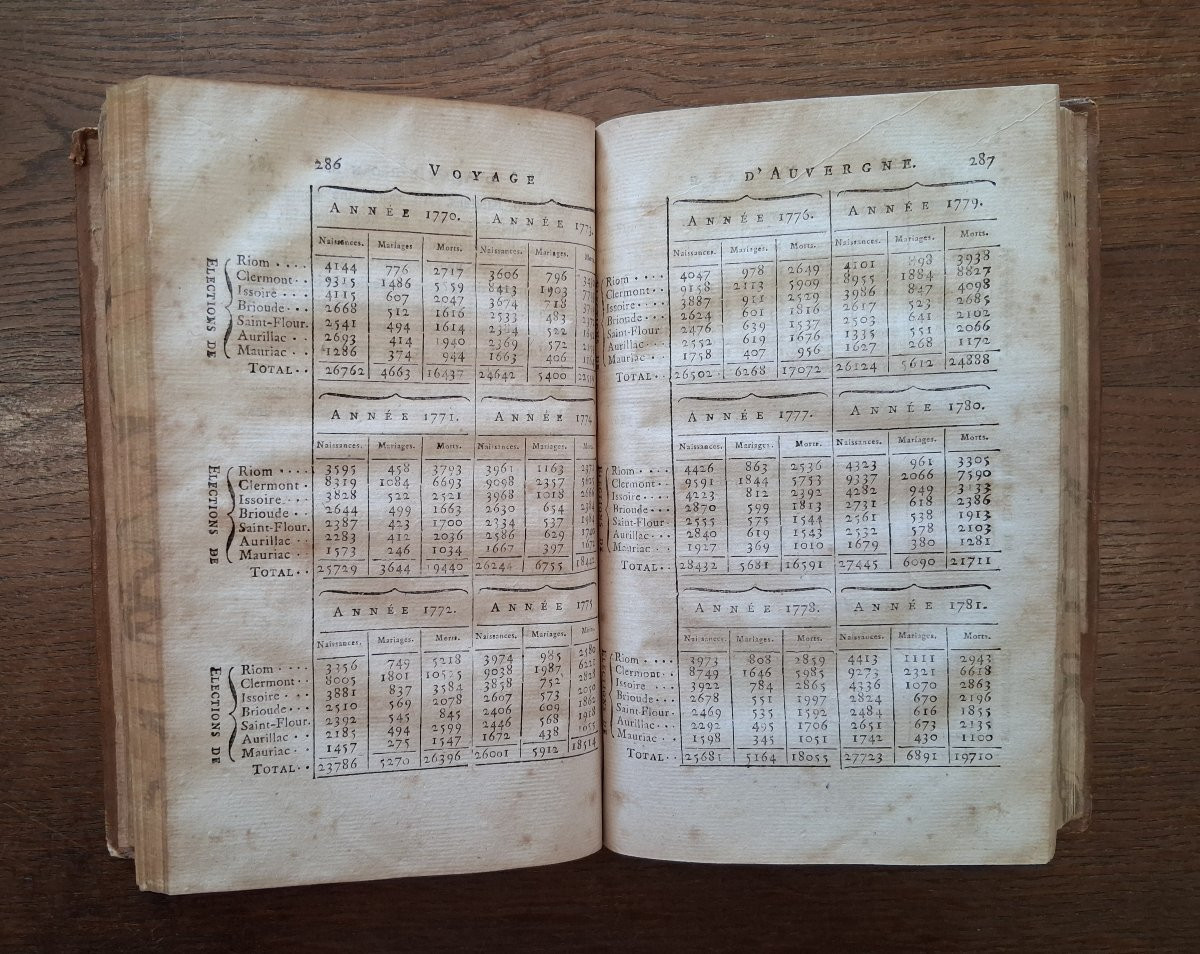 286 VOYAGE
ANNÉE 1770. ANNÉE 1773.
Naissances. Mariages Morts. Naissances. Mariages.
ELECTIONS DE
Riom 4144 776 2717 3606 796
Clermont 9315 1486 5759 8413 1903
Issoire 4115 607 2047 3674 718
Brioude 2668 512 1616 2533 483
Saint-Flour. 2541 494 1614 522
Aurillac 2693 414 1940 2369 572
Mauriac 1286 374 944 1663 406
TOTAL 26762 4663 16437 24642 5400
ANNÉE 1771. ANNÉE 1774
Naissances. Mariages. Morts. Naissances. Mariages.
ELECTIONS DE
Riom 3595 458 3793 3961 1163
Clermont 8319 1084 6693 9098 2357
Issoire 3828 522 2521 3968 1018
Brioude 2644 499 1663 2630 654
Saint-Flour. 2387 423 1700 2334 537
Aurillac 2283 412 2036 2586 629
Mauriac 1573 246 1034 1667 397
TOTAL 25729 3644 19440 26244 6755
ANNÉE 1772. ANNÉE 1775
Naissances. Mariages. Morts. Naissances. Mariages.
ELECTIONS DE
Riom 3356 749 5218 3974 985 2580
Clermont 8005 1801 10525 9038 1987
Issoire 3881 837 3584 3858 752
Brioude 2510 569 2078 2607 573 2050
Saint-Flour. 2392 545 845 2406 609 1862
Aurillac 2185 494 2599 2446 568 1918
Mauriac 1457 275 1547 1672 438
TOTAL 23786 5270 26396 26001 5912 18514
D'AUVERGNE. 287
ANNÉE 1776. ANNÉE 1779.
Naissances. Mariages. Morts. Naissances. Mariages. Morts.
Riom 4047 978 2649 4101 898 3938
Clermont 9158 2113 5909 8955 1884 8827
Issoire 3887 911 2529 3986 847 4098
Brioude 2624 601 1816 2617 523 2685
Saint-Flour 2476 639 1537 2503 641 2102
Aurillac 2552 619 1676 1335 551 2066
Mauriac 1758 407 956 1627 268 1172
TOTAL 26502 6268 17072 26124 5612 24888
ANNÉE 1777. ANNÉE 1780.
Naissances. Mariages. Morts. Naissances. Mariages. Morts.
Riom 4426 863 2536 4323 961 3305
Clermont 9591 1844 5753 9337 2066 7590
Issoire 4223 812 2392 4282 949 3133
Brioude 2870 599 1813 2731 618 2386
Saint-Flour 2555 575 1544 2561 538 1913
Aurillac 2840 619 1543 2532 578 2103
Mauriac 1927 369 1010 1679 380 1281
TOTAL 28432 5681 16591 27445 6090 21711
ANNÉE 1778. ANNÉE 1781.
Naissances. Mariages. Morts. Naissances. Mariages. Morts.
Riom 3973 808 2859 4413 1111 2943
Clermont 8749 1646 5985 9273 2321 6618
Issoire 3922 784 2865 4336 1070 2863
Brioude 2678 551 1997 2824 670 2196
Saint-Flour 2469 535 1592 2484 616 1855
Aurillac 2292 495 1706 2651 673 2135
Mauriac 1598 345 1051 1742 430 1100
TOTAL 25681 5164 18055 27723 6891 19710